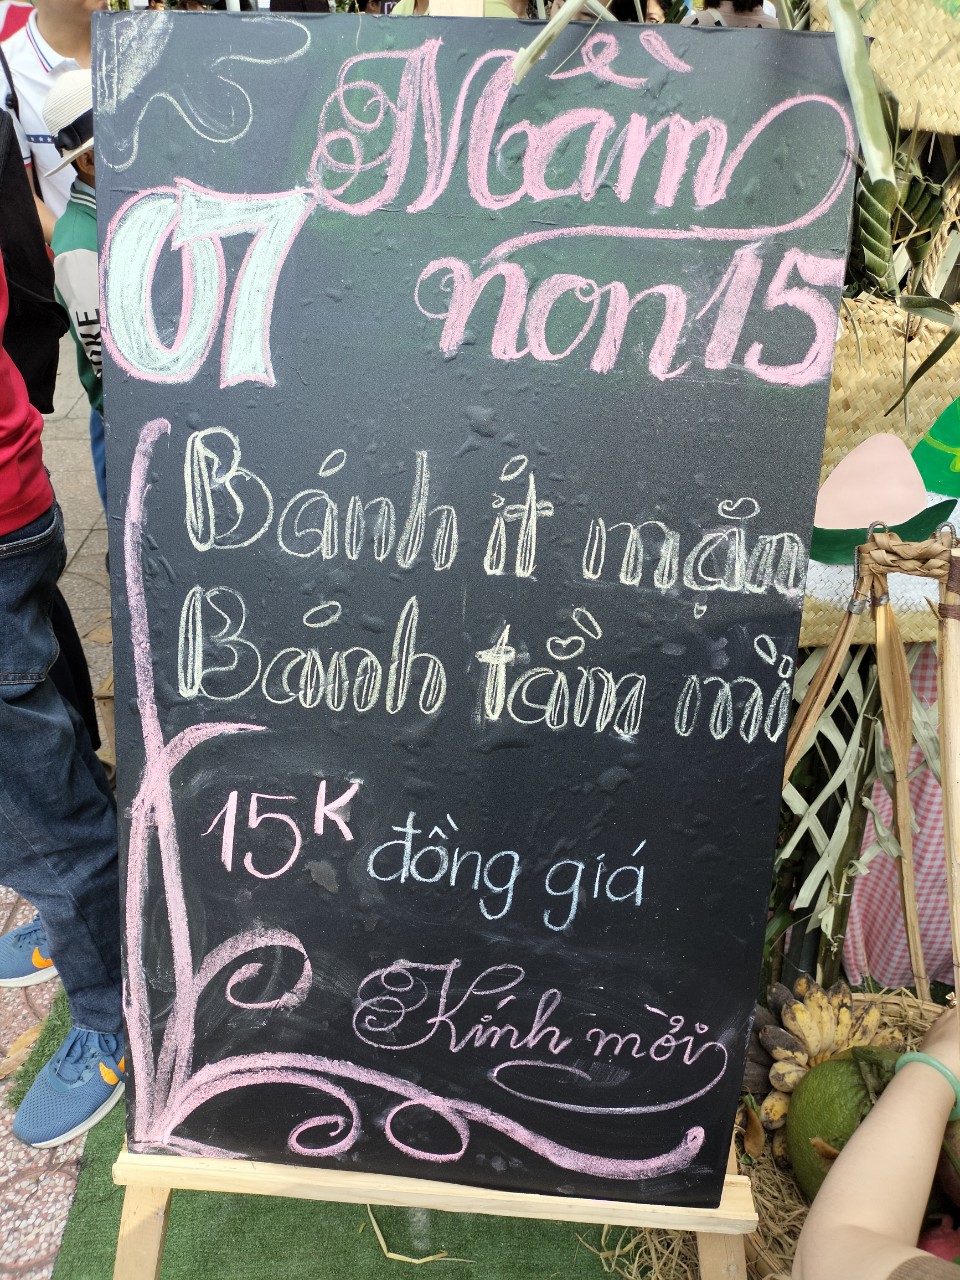 Mầm
07 non 15
Bánh ít mặn
Bánh tằm mì
15K đồng giá
Kính mời